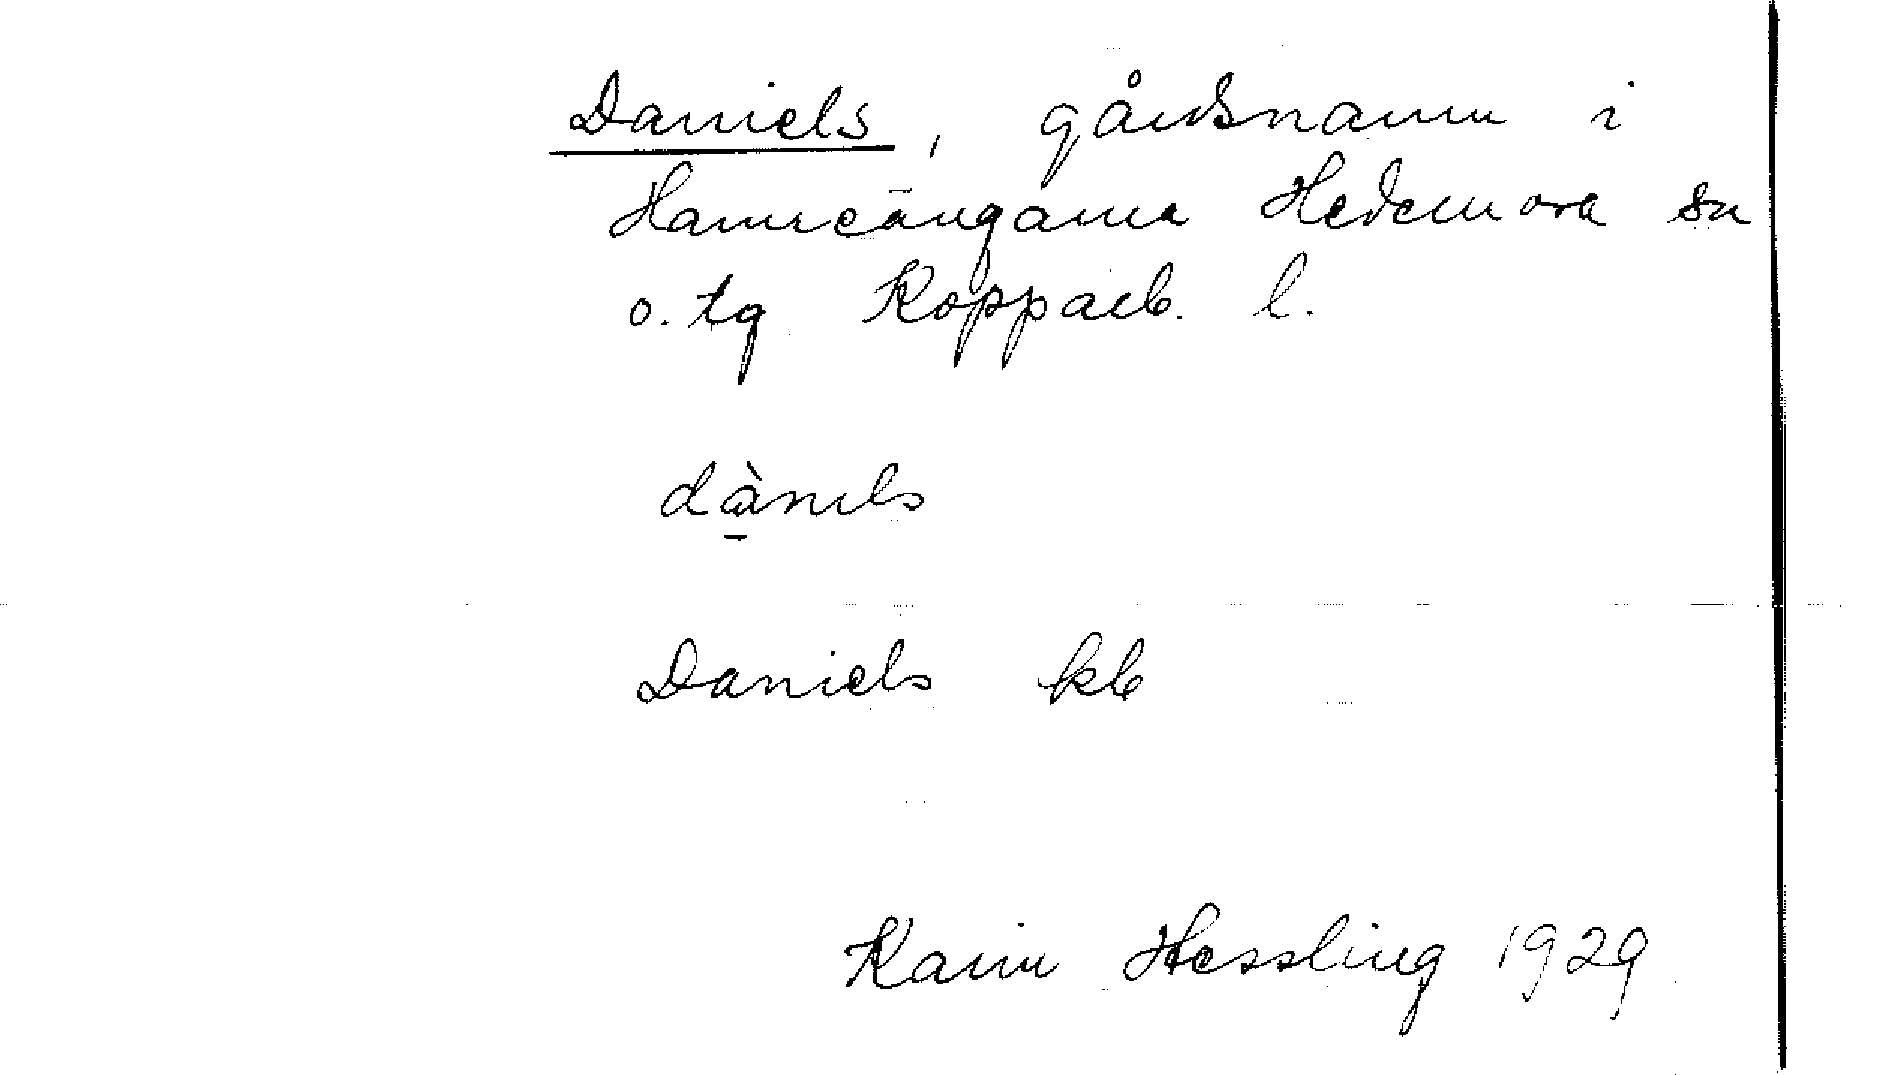 Daniels, gårdsnamn i
Hamreängarna Hedemora sn
o. tg Kopparb. l.
dànils
Daniels kb
Karin Hessling 1929